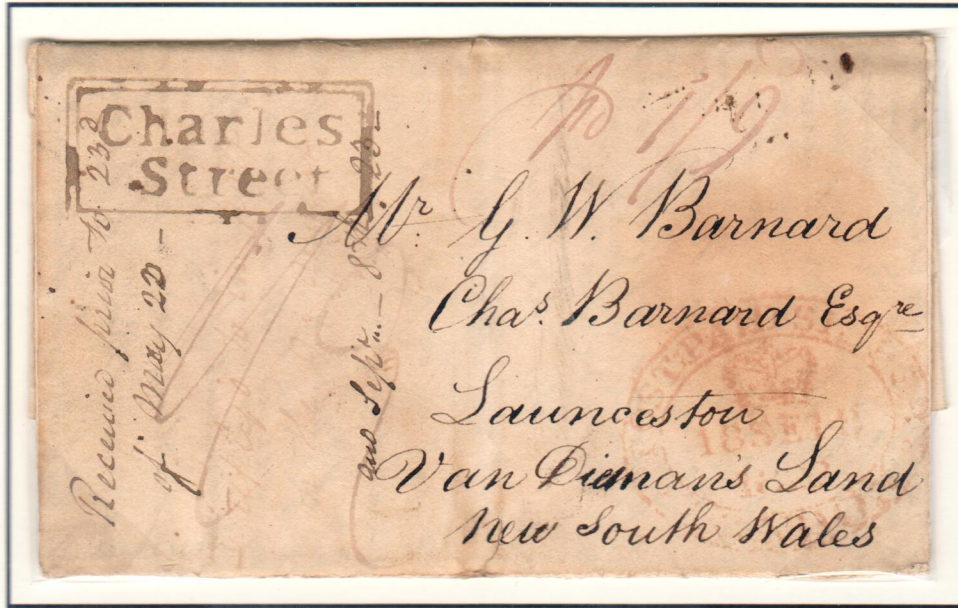 Charles
Street
Pd 1/9
Mr G. W. Barnard
Chas. Barnard Esqre
Launceston
Van Dieman's Land
New South Wales
Received prior to 23d
of May 22 -
ans Septr. - 8
18 SE